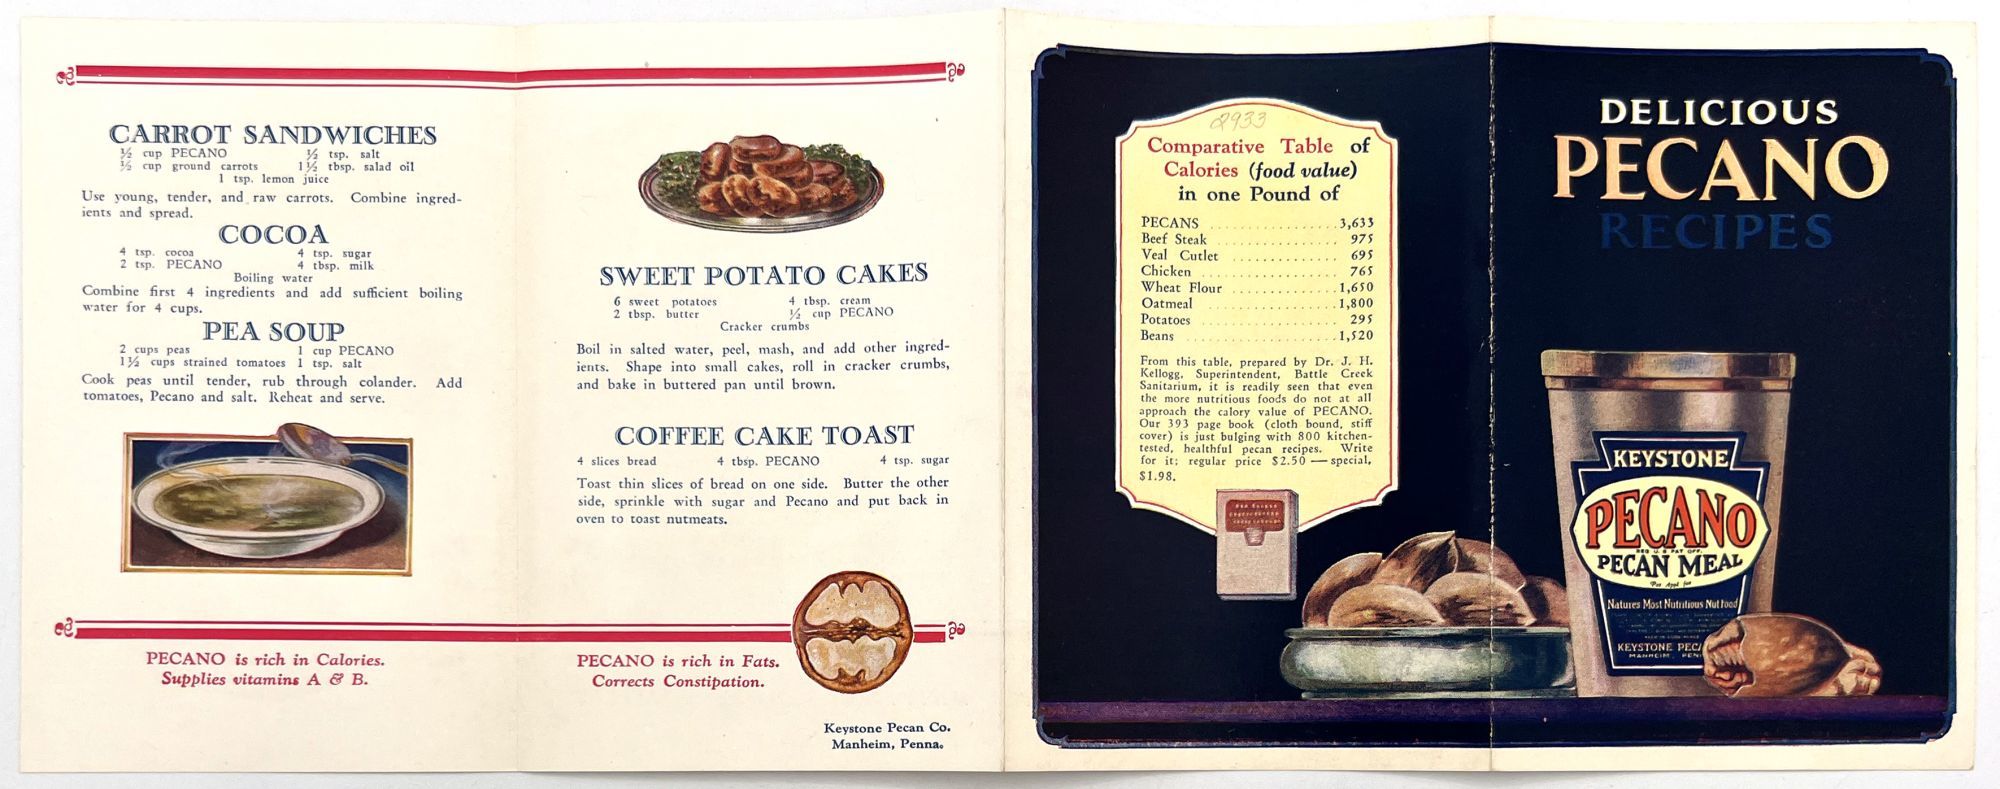 CARROT SANDWICHES
½ cup PECANO ½ tsp. salt
½ cup ground carrots 1½ tbsp. salad oil
1 tsp. lemon juice
Use young, tender, and raw carrots. Combine ingred-
ients and spread.
COCOA
4 tsp. cocoa 4 tsp. sugar
2 tsp. PECANO 4 tbsp. milk
Boiling water
Combine first 4 ingredients and add sufficient boiling
water for 4 cups.
PEA SOUP
2 cups peas 1 cup PECANO
1½ cups strained tomatoes 1 tsp. salt
Cook peas until tender, rub through colander. Add
tomatoes, Pecano and salt. Reheat and serve.
PECANO is rich in Calories.
Supplies vitamins A & B.
SWEET POTATO CAKES
6 sweet potatoes 4 tbsp. cream
2 tbsp. butter ½ cup PECANO
Cracker crumbs
Boil in salted water, peel, mash, and add other ingred-
ients. Shape into small cakes, roll in cracker crumbs,
and bake in buttered pan until brown.
COFFEE CAKE TOAST
4 slices bread 4 tbsp. PECANO 4 tsp. sugar
Toast thin slices of bread on one side. Butter the other
side, sprinkle with sugar and Pecano and put back in
oven to toast nutmeats.
PECANO is rich in Fats.
Corrects Constipation.
Keystone Pecan Co.
Manheim, Penna.
2933
Comparative Table of
Calories (food value)
in one Pound of
PECANS 3,633
Beef Steak 975
Veal Cutlet 695
Chicken 765
Wheat Flour 1,650
Oatmeal 1,800
Potatoes 295
Beans 1,520
From this table, prepared by Dr. J. H.
Kellogg, Superintendent, Battle Creek
Sanitarium, it is readily seen that even
the more nutritious foods do not at all
approach the calory value of PECANO.
Our 393 page book (cloth bound, stiff
cover) is just bulging with 800 kitchen-
tested, healthful pecan recipes. Write
for it; regular price $2.50 — special,
$1.98.
DELICIOUS
PECANO
RECIPES
KEYSTONE
PECANO
REG U. S. PAT. OFF.
PECAN MEAL
Pat Appl for
Natures Most Nutritious Nut Food
KEYSTONE PECA
MANHEIM, PEN